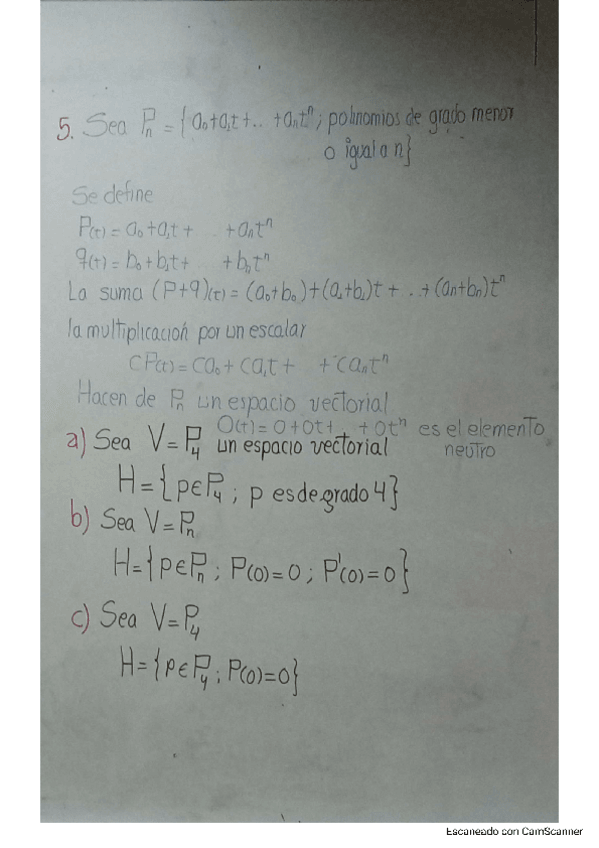 5. Sea Pn = { a0+a1t+... +antⁿ ; polinomios de grado menor
o igual a n}
Se define
P(t) = a0+a1t+ ... +antⁿ
q(t) = b0+b1t+ ... +bntⁿ
La suma (P+q)(t) = (a0+b0)+(a1+b1)t + ...+(an+bn)tⁿ
la multiplicación por un escalar
cP(t) = ca0+ca1t+ +cantⁿ
Hacen de Pn un espacio vectorial
O(t)=0+0t+ +0tⁿ es el elemento neutro
a) Sea V=P4 un espacio vectorial
H={p∈P4 ; p es de grado 4}
b) Sea V=Pn
H={p∈Pn ; P(0)=0 ; P'(0)=0}
c) Sea V=P4
H={p∈P4 ; P(0)=0}
Escaneado con CamScanner